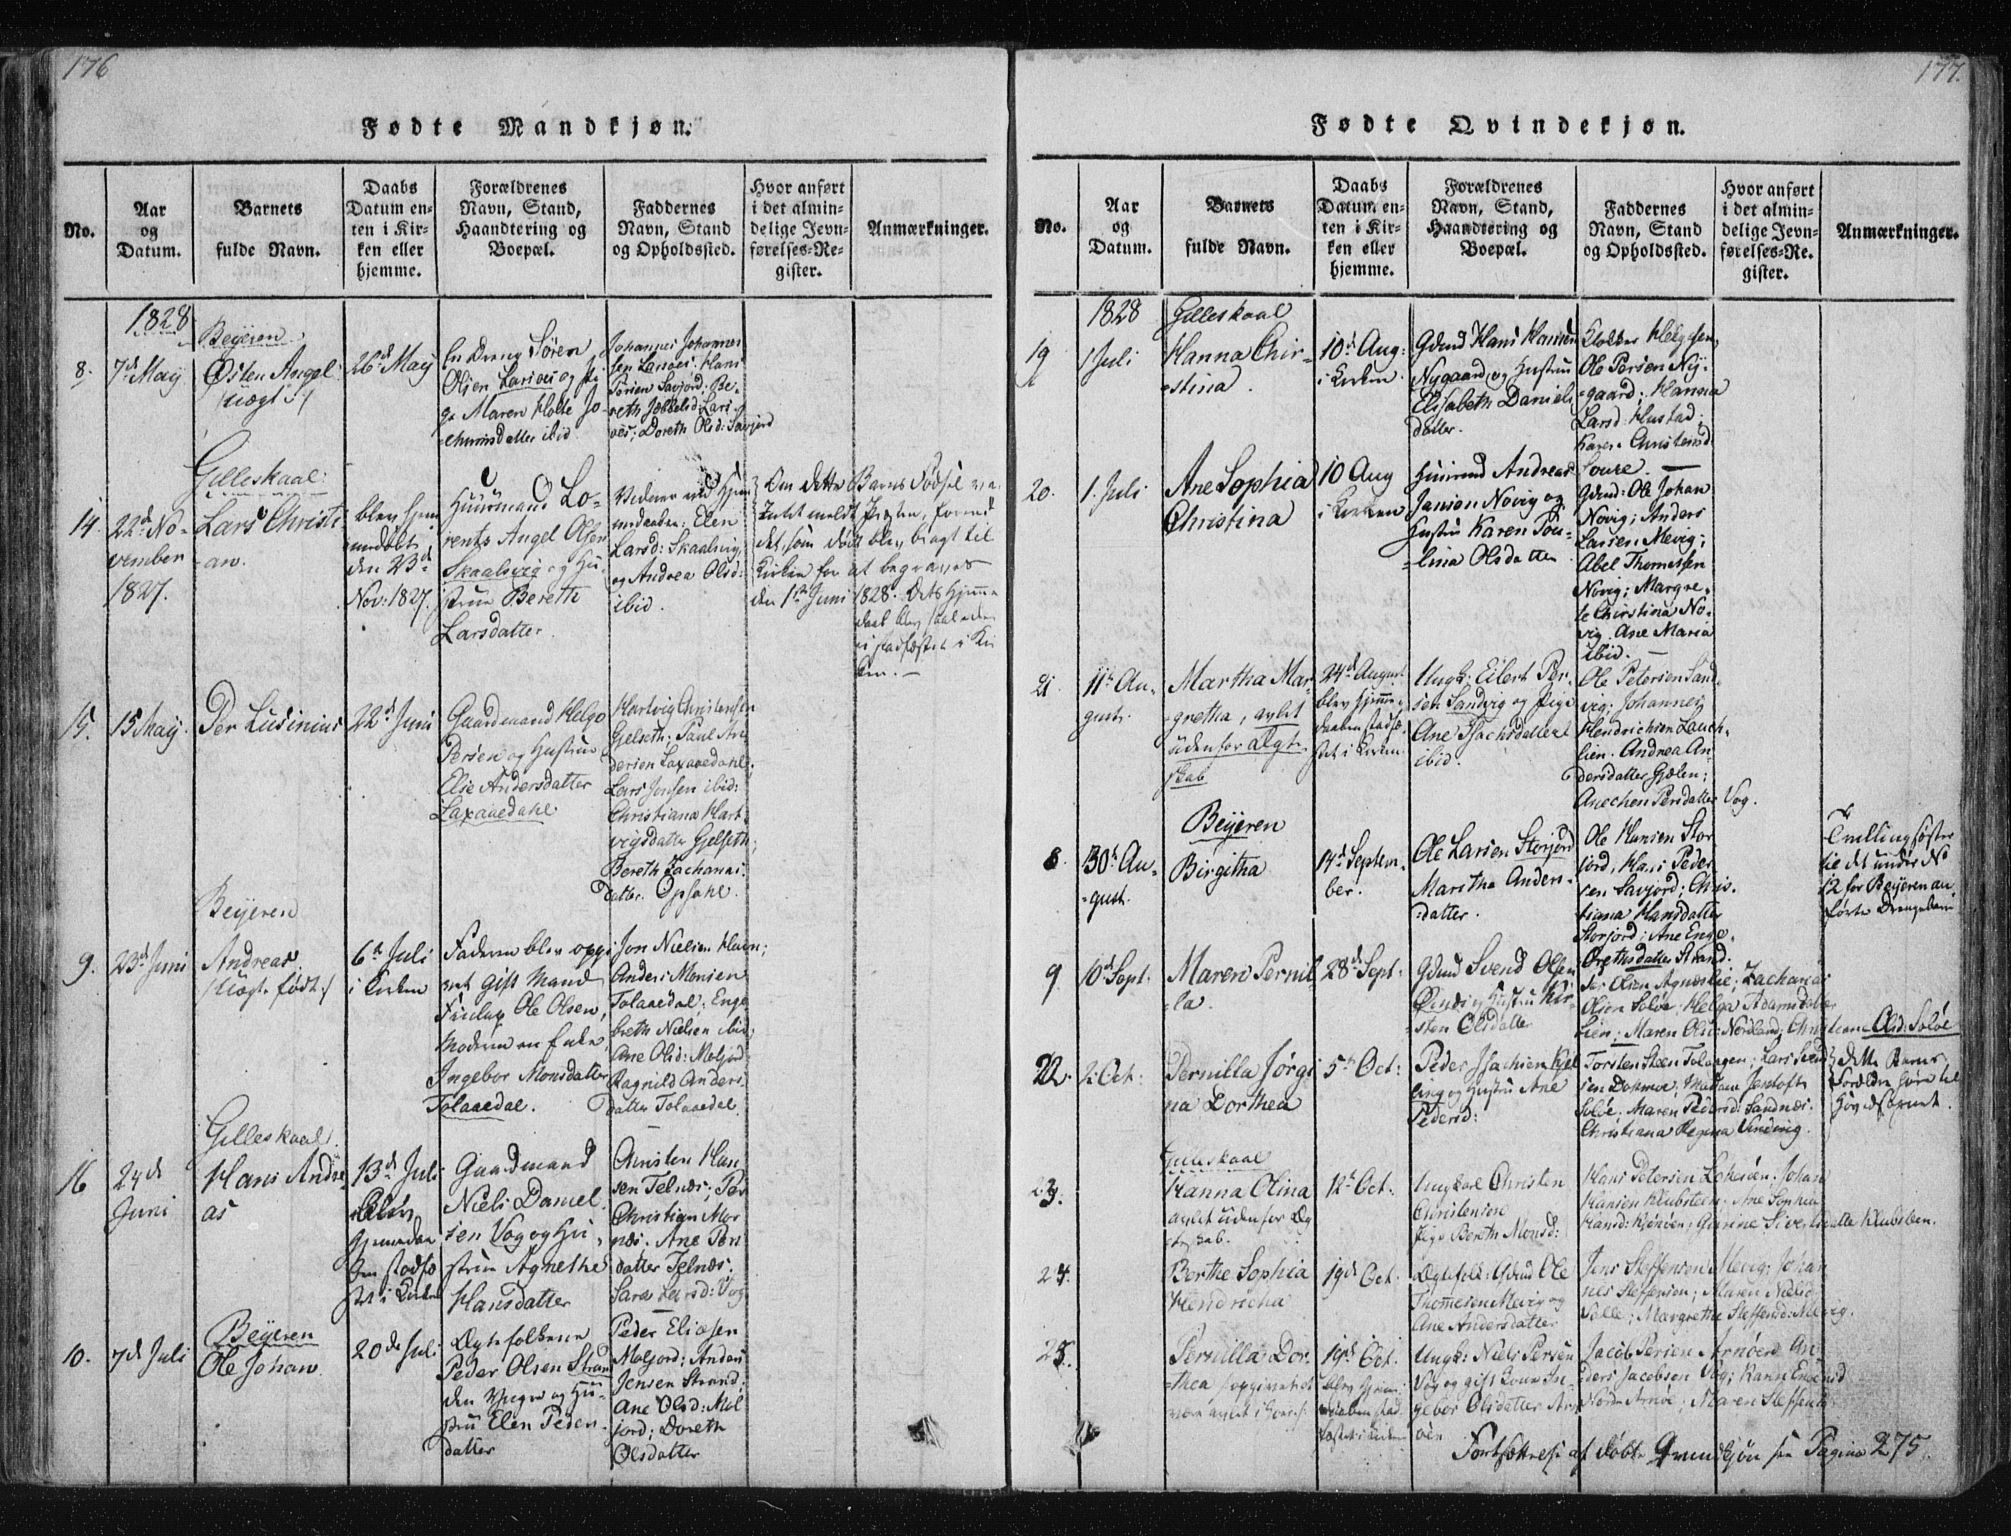 176
Fødte Mandkjøn.
No.
Aar
og
Datum.
Barnets
fulde Navn.
Daabs
Datum en-
ten i Kir-
ken eller
hjemme.
Forældrenes
Navn, Stand,
Haandtering og
Boepæl.
Faddernes
Navn, Stand
og Opholdssted.
Hvor anført
i det almin-
delige Jevn-
førelses-Re-
gister.
Anmærkninger.
1828
Beyeren
8.
7d May
Østen Angel
26d May
En Dreng Sören
Olsen Larsoes og Pi-
ge Maren Holte Jo-
chumsdatter ibid
Johannes Johannes
sen Larsoes: Hans
Sörien Savjord: Be-
reth Jebbelsd: Lars-
oes; Doreth Olsd: Savjord
Gilleskaal:
14.
22d No-
vember
1827.
Lars Christi
-an.
blev hjem
medøbt
den 23d
Nov: 1827.
Huusmand Lo-
rents Angel Olsen
Skaalsvig og Hu-
strue Bereth
Larsdatter.
Vidner ved Hjem
medaaben: Elen
Larsd: Skaalsvig,
og Andrea Olsd:
ibid.
Om dette Barns Fødsel var
det, som død blev bragt til
Kirken for at begraves
den 1ste Juni 1828. Dets Hjemme
daab blev saaledes
ei stadfæstet i Kir
ken. -
15.
15 May.
Per Lusinius
22d Juni
Gaardmand Helgo
Persen og Hustrue
Elie Andersdatter
Laxaaedahl.
Hartvig Christensen
Gjelseth; Paul An
dersen Laxaaedahl.
Lars Jonsen ibid:
Christiana Hart-
vigsdatter Gjelseth;
Bereth Zacharias-
datter Opsahl.
Beyeren
9.
23d Juni
Andreas
/:Uægte født:/
6te Juli
i Kirken
Faderen blev opgi
vet Gift Mand
Finlap Ole Olsen,
Moderen en Enke
Ingebor Monsdatter
Tolaaedal.
Jon Nielsen Havn;
Anders Monsen
Tolaaedal; Enge
breth Nielsen ibid;
Ane Olsd: Moljord
Ragnild Anders
datter Tolaaedal.
Gilleskaal.
16
24d
Juni
Hans Andre-
as
13d Juli
blev
Hjemmedaa
ben stadfæ
stet i Kirken
Gaardmand
Niels Daniel
sen Vog og Hu-
strue Agnethe
Hansdatter
Christen Han
sen Telnæs; Per
Christian Mor
næs. Ane Pers
datter Telnæs.
Sara Larsd: Vog
Beyeren
10.
7d Juli
Ole Johan
20de Juli
Ægtefolkene
Peder Olsen Stran
den Ynger og Hu-
stru Elen Peders-
datter
Peder Eliasen
Moljord; Anders
Jensen Strand;
Ane Olsd: Mol
jord; Doreth
Olsdatter
177.
Fødte Qvindekjøn.
No.
Aar
og
Datum.
Barnets
fulde Navn.
Daabs
Datum en-
ten i Kir-
ken eller
hjemme.
Forældrenes
Navn, Stand,
Haandtering og
Boepæl.
Faddernes
Navn, Stand
og Opholdssted.
Hvor anført
i det almin-
delige Jevn-
førelses-Re-
gister.
Anmærkninger.
1828
Gilleskaal
19
1 Juli
Hanna Chir-
-stina.
10d Aug:
i Kirken.
Gdmd Hans Hansen
Nygaard og Hustru
Elisabeth Daniels
datter.
Klokker Helgesen,
Ole Persen Ny-
-gaard; Hanna
Larsd: Hustad;
Karen Christensd
Soure. -
20.
1. Juli
Ane Sophia
Christina
10 Aug
i Kirken
Huusmd Andreas
Jansen Novig og
Hustru Karen Pou-
-lina Olsdatter
Gdmd: Ole Johan
Novig; Anders
Larsen Mevig;
Abel Thomesen
Novig; Margre-
te Christina No-
vig. Ane Maria
ibid. -
21
11te Au-
gust.
Martha Mar-
gretha, avlet
udenfor Ægte
skab
24d August
blev Hjemme-
daaben stadfæ-
stet i Kirken.
Ungk: Eilert Per-
sen Sandvig og Pige
Ane Isachsdatter
ibid.
Ole Petersen Sand-
vig; Johannes
Hendrichsen Lauch-
lien. Andrea An-
dersdatter Gjælen;
Anechen Persdatter Vog.
Beyeren
8.
30te Au-
-gust.
Birgitha
14d Septem-
ber.
Ole Larsen Storjord
Maritha Anders-
datter.
Ole Hansen Stor
jord, Hans Peder
sen Savjord; Chris-
tiana Hansdatter
Storjord; Ane Enge-
brethsdatter Strand.
Tvillingsøster
til det under No
12 for Beyeren an
førte Drengebarn
9
10d Sept.
Maren Pernil
la.
28d Sept.
Gdmd Svend Olsen
og Hustru Kir-
-sten Olsdatter
Per Olsen Agnæslie; Zacharias
Olsen Soløe; Helga Adamsdatter
Lien; Maren Olsd: Nordland; Christiana Olsd: Soløe
22.
2. Oct:
Pernilla Jørgi
na Dorthea
5te Oct:
Peder Isachsen Kjel
ling og Hustru Ane
Pedersd:
Torsten Steen Tolaagen; Lars Svend
sen Dokmoe; Madam Jentoft
Soløe. Maren Pedersd: Sandnæs.
Christiana Regina Vinding.
dette Barns
Forældre høre til
Hovedsognet.
Gilleskaal
23.
Hanna Olina
avlet udenfor Æg
teskab.
12te Oct:
Ungkarl Christen
Christensen
Pige Bereth Monsd:
Hans Petersen Zakosøen. Johan
Hansen Klubsteen. Ane Sophia
Hansd: Kjönöen; Gurine Sivertsdatter Klubsteen.
24.
Berthe Sophia
Hendricha
19d Oct.
Ægtefolk: Gdmd Ole
Thomesen Mevig og
Ane Andersdatter
Jens Steffensen Mevig; Johan
nes Steffensen; Maren Nielsd
Valle; Margrethe Steffensd: Mevig.
25.
Pernilla Dor-
-thea
19d Oct.
blev Hjem-
medaaben stad
fæstet i Kirken
Ungk: Niels Persen
Vog og gift Kone In-
gebor Olsdatter Arn
öen
Jacob Persen Arnöen An
ders Jacobsen Vog;
Nordre Arnöe; Maren Steffensd:
Fortsættelse af døbte Qvindekjøn see Pagina 275.